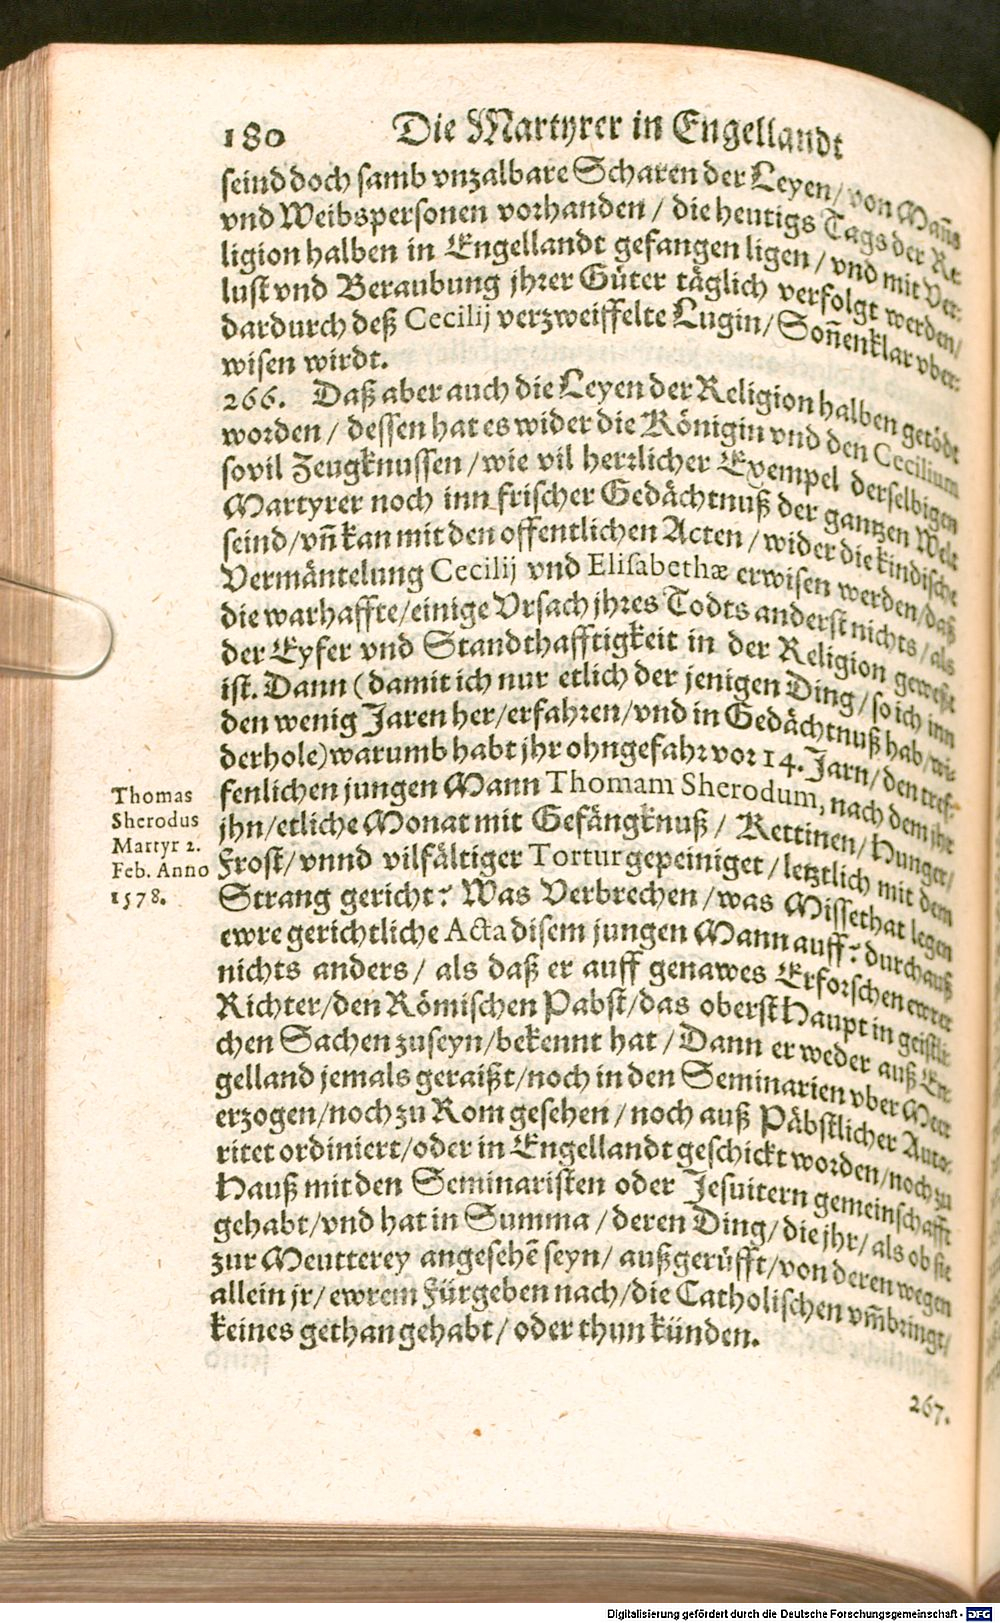 180 Die Martyrer in Engellandt
seind doch samb vnzalbare Scharen der Leyen / von Mañs
vnd Weibspersonen vorhanden / die heutigs Tags der Re-
ligion halben in Engellandt gefangen ligen / vnd mit Ver-
lust vnd Beraubung jhrer Güter täglich verfolgt werden /
dardurch deß Cecilij verzweiffelte Lugin / Soñenklar vber-
wisen wirdt.
266. Daß aber auch die Leyen der Religion halben getödt
worden / dessen hat es wider die Königin vnd den Cecilium
souil Zeugknussen / wie vil herrlicher Exempel derselbigen
Martyrer noch inn frischer Gedächtnuß der gantzen Welt
seind / vñ kan mit den offentlichen Acten / wider die kindische
Vermäntelung Cecilij vnd Elisabethæ erwisen werden / daß
die warhaffte / einige Vrsach jhres Todts anderst nichts / als
der Eyfer vnd Standthafftigkeit in der Religion geweßt
ist. Dann (damit ich nur etlich der jenigen Ding / so ich inn
den wenig Jaren her / erfahren / vnd in Gedächtnuß hab / wi-
derhole) warumb habt jhr ohngefahr vor 14. Jarn / den tref-
fenlichen jungen Mann Thomam Sherodum, nach dem jhr
jhn / etliche Monat mit Gefängknuß / Kettinen / Hunger /
Frost / vnnd vilfältiger Tortur gepeiniget / letztlich mit dem
Strang gericht? Was Verbrechen / was Missethat legen
ewre gerichtliche Acta disem jungen Mann auff? durchauß
nichts anders / als daß er auff genawes Erforschen ewrer
Richter / den Römischen Pabst / das oberst Haupt in geistli-
chen Sachen zuseyn / bekennt hat / Dann er weder auß En-
gelland jemals geraißt / noch in den Seminarien vber Meer
erzogen / noch zu Rom gesehen / noch auß Päbstlicher Auto-
ritet ordiniert / oder in Engellandt geschickt worden / noch zu
Hauß mit den Seminaristen oder Jesuitern gemeinschafft
gehabt / vnd hat in Summa / deren Ding / die jhr / als ob sie
zur Meutterey angesehẽ seyn / außgerüfft / von deren wegen
allein jr / ewrem Fürgeben nach / die Catholischen vm̃bringt /
keines gethan gehabt / oder thun künden.
267.
Thomas
Sherodus
Martyr 2.
Feb. Anno
1578.
Digitalisierung gefördert durch die Deutsche Forschungsgemeinschaft - DFG